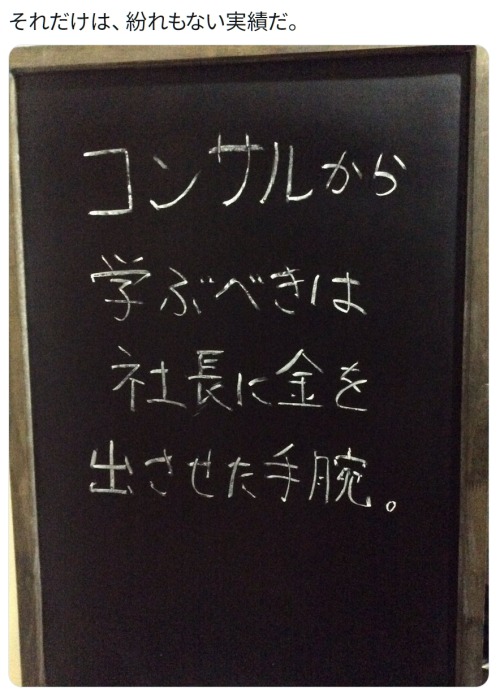 それだけは、紛れもない実績だ。
コンサルから
学ぶべきは
社長に金を
出させた手腕。